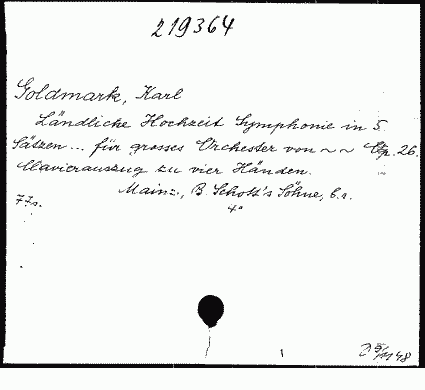 219364
Goldmark, Karl
Ländliche Hochzeit Symphonie in 5
Sätzen ... für grosses Orchester von ~ ~ Op. 26.
Klavierauszug zu vier Händen.
Mainz, B. Schott's Söhne, é.n.
4°
77s.
48